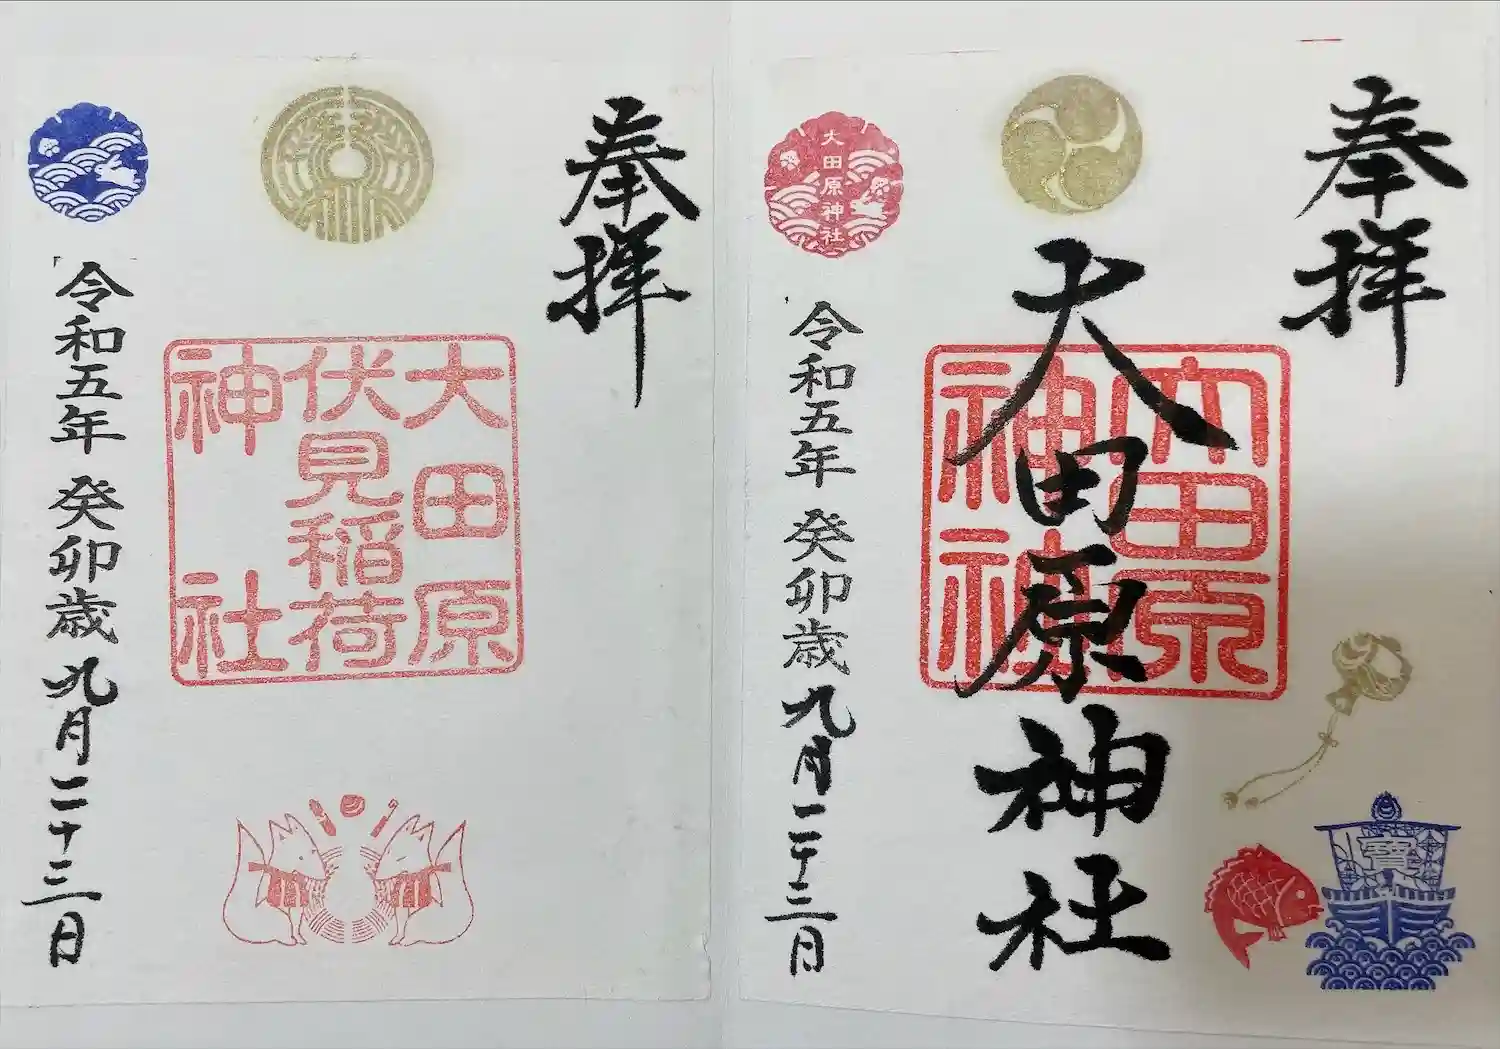 奉拝
大田原
伏見稲荷
神社
令和五年 癸卯歳 九月二十三日
奉拝
大田原神社
大田原
神社
大田原神社
寳
令和五年 癸卯歳 九月二十三日